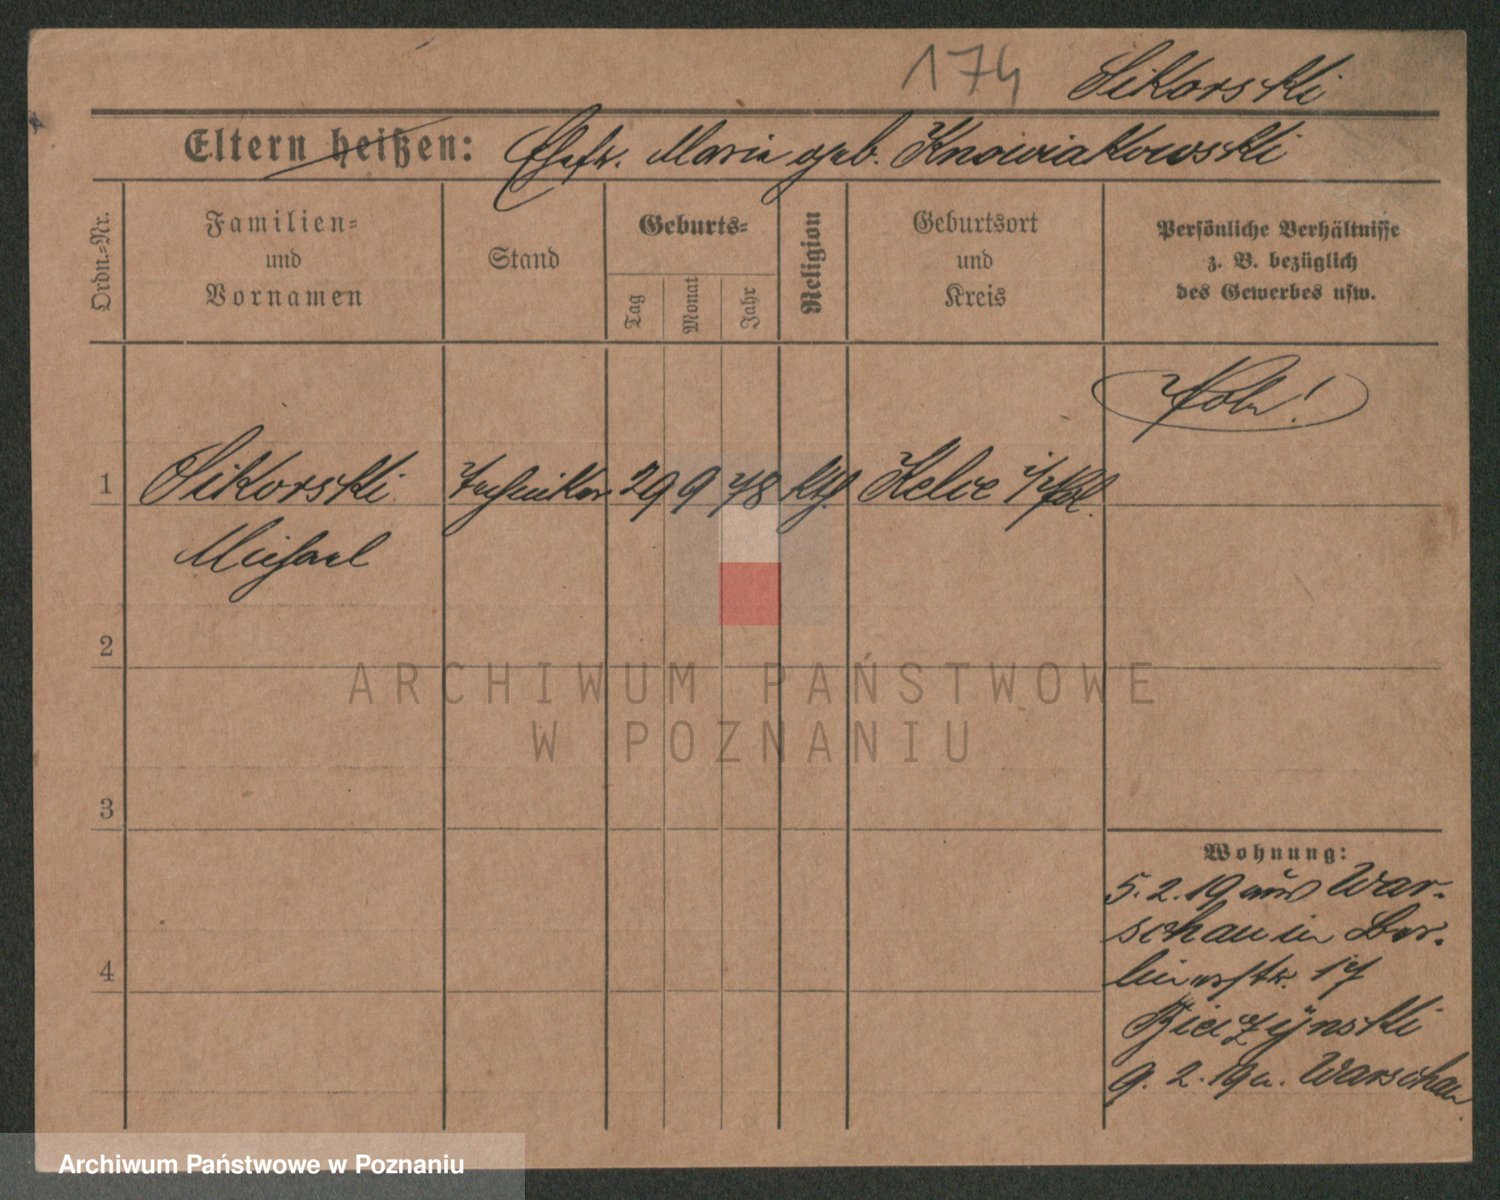 174 Sikorski
Eltern heißen: Ehefr. Maria geb. Knowiakowski
Ordn.-Nr.
Familien-
und
Vornamen
Stand
Geburts-
Tag
Monat
Jahr
Religion
Geburtsort
und
Kreis
Persönliche Verhältnisse
z. B. bezüglich
des Gewerbes usw.
Pole!
1 Sikorski Techniker 29 9 78 kth. Kelce i/Pol.
Michael
2
3
4
Wohnung:
5.2.19 aus War-
schau in Ber-
linerstr. 17
9.2.19 n. Warschau
ARCHIWUM PAŃSTWOWE
W POZNANIU
Archiwum Państwowe w Poznaniu